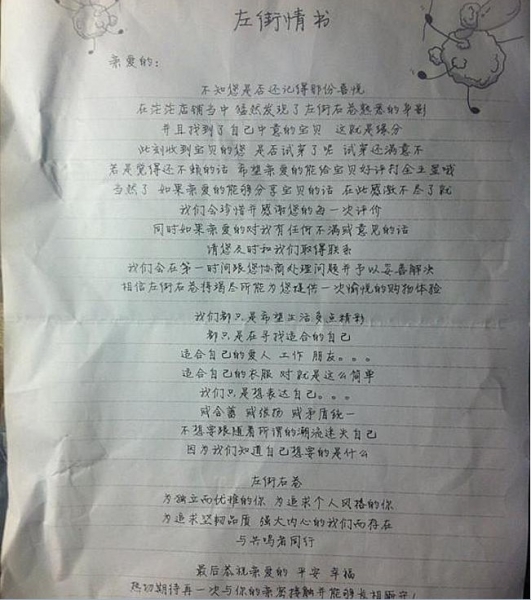 左街情书
亲爱的：
不知您是否还记得那份喜悦
在茫茫店铺当中 猛然发现了左街右巷熟悉的身影
并且找到了自己中意的宝贝 这就是缘分
此刻收到宝贝的您 是否试穿了呢 试穿还满意不
若是觉得还不赖的话 希望亲爱的能给宝贝好评打全五星哦
当然了 如果亲爱的能够分享宝贝的话 在此感激不尽了就
我们会珍惜并感谢您的每一次评价
同时如果亲爱的对我有任何不满或意见的话
请您及时和我们取得联系
我们会在第一时间跟您协商处理问题并予以妥善解决
相信左街右巷将竭尽所能为您提供一次愉悦的购物体验
我们都只是希望生活多点精彩
都只是在寻找适合的自己
适合自己的爱人 工作 朋友。。。
适合自己的衣服 对就是这么简单
我们只是想表达自己。。。
或含蓄 或张扬 或矛盾统一
不想要跟随着所谓的潮流迷失自己
因为我们知道自己想要的是什么
左街右巷
为独立而优雅的你 为追求个人风格的你
为追求坚韧品质 强大内心的我们而存在
与共鸣者同行
最后恭祝亲爱的 平安 幸福
热切期待再一次与你的亲密接触并能够长相厮守！